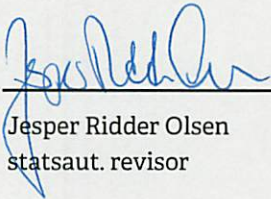 Jesper Ridder Olsen
statsaut. revisor